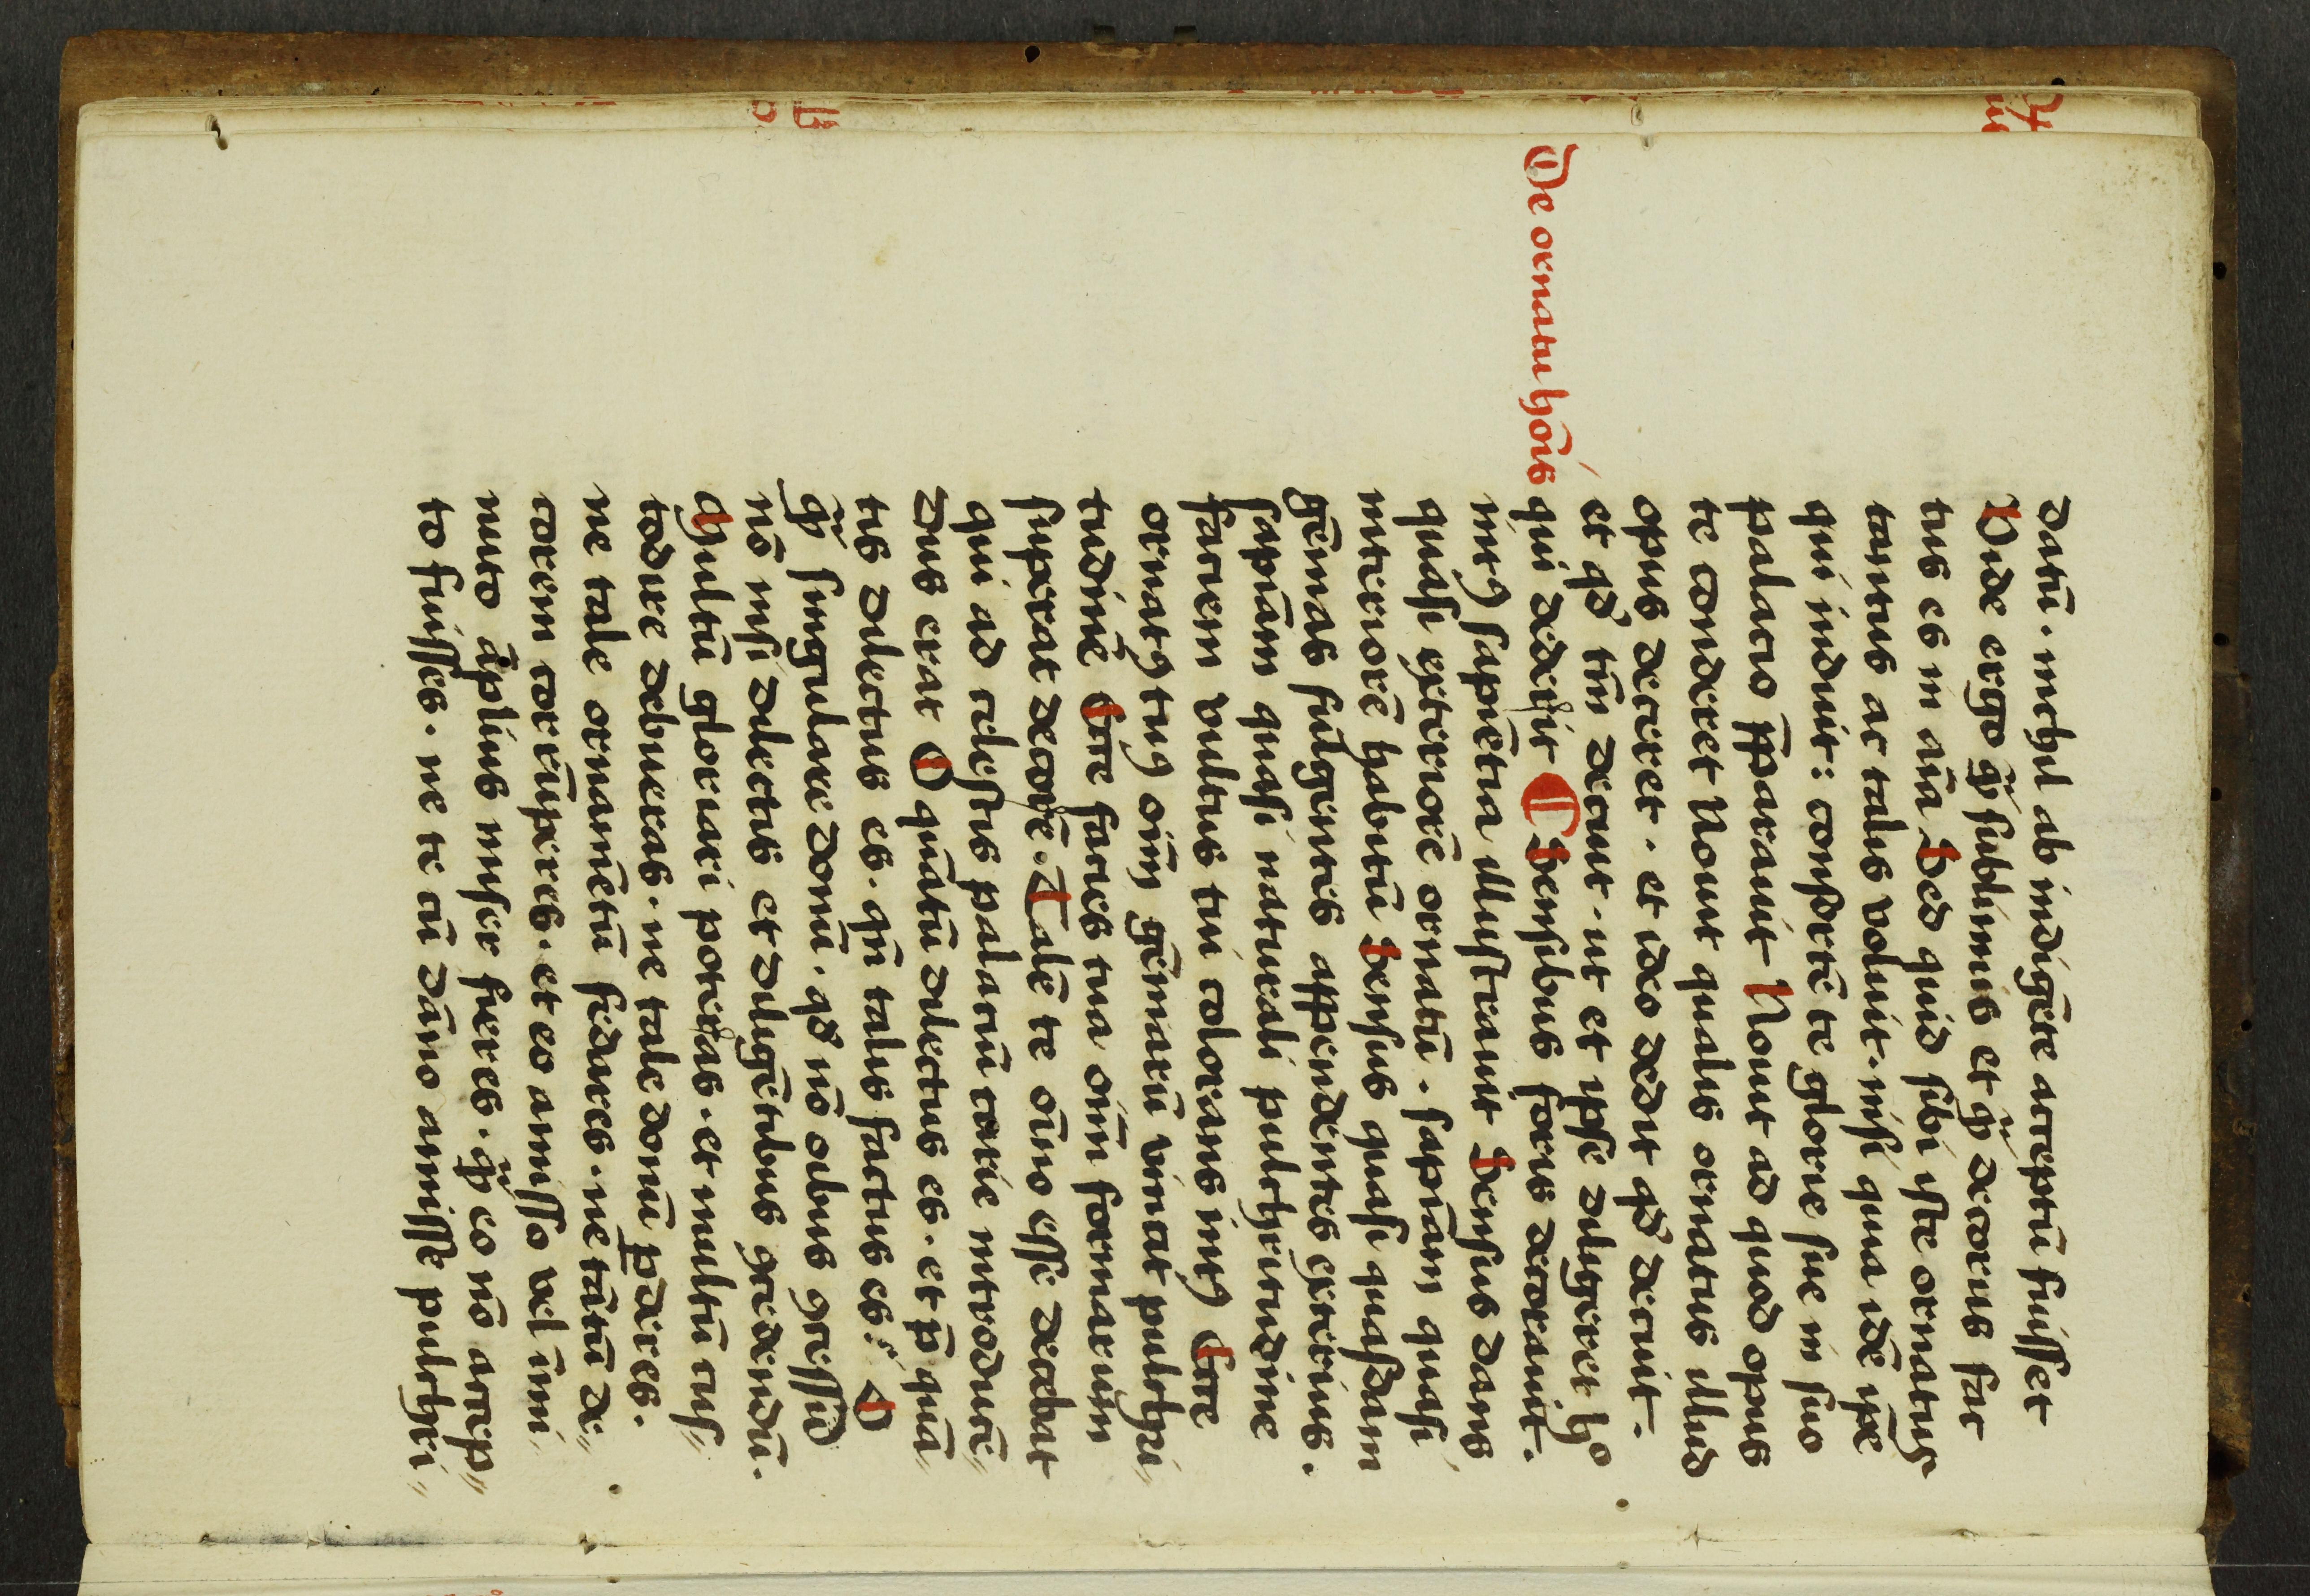 datū. nichil ab indigēte acceptū fuisset
Vide ergo qͣ sublimis et qͣ decorus fac
tus es aīa Sed quid sibi iste ornatus
tantus ac talis voluit. nisi quia idē ipē
qui induit: consortē te glorie sue in suo
palacio p̄paravit Novit ad quod opus
te conderet Novit qualis ornatus illud
opus deceret. et ideo dedit qd̓ decuit.
et qd̓ tm̄ decuit. ut et ipse diligeret ho
De ornatu hōis
qui dederit Sensibus foris decoravit.
intꝰ sapiētia illustravit Sensus dans
quasi exteriorē ornatū. sapīam quasi
interiorē habitū Sensus quasi quasdam
gēmas fulgentes appendentes exterius.
sapīam quasi naturali pulchritudine
faciem vultus tui colorans intꝰ Ecce
ornatꝰ tuꝰ oīm gēmarū vincit pulchri⸗
tudinē Ecce facies tua oīm formarum
superat decorē. Talē te oīno esse decebat
qui ad celestis palacij curie introduce⸗
dus erat O quātū dilectus es. et p̄ quā⸗
tis dilectus es. qn̄ talis factus es. O
qͣ singulare donū. qd̓ nō oībus gressid
nō nisi dilectis et diligētibus gredendū.
Multū gloriari poteras. et multū cus⸗
todire debueras. ne tale donū ꝑderes.
ne tale ornamētū fedares. ne tātū de⸗
corem corrūperes. et eo amisso vel īmi⸗
nuto āplius miser fieres. qͣ eo nō accep⸗
to fuisses. ne te cū dāno amisse pulchri⸗